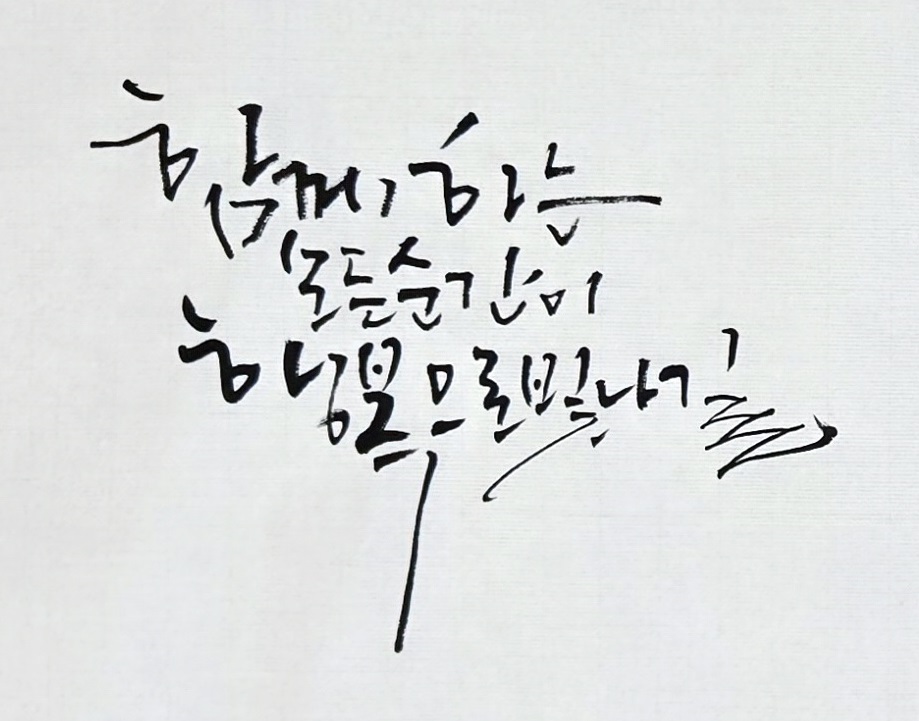 함께하는
모든순간이
행복으로빛나길